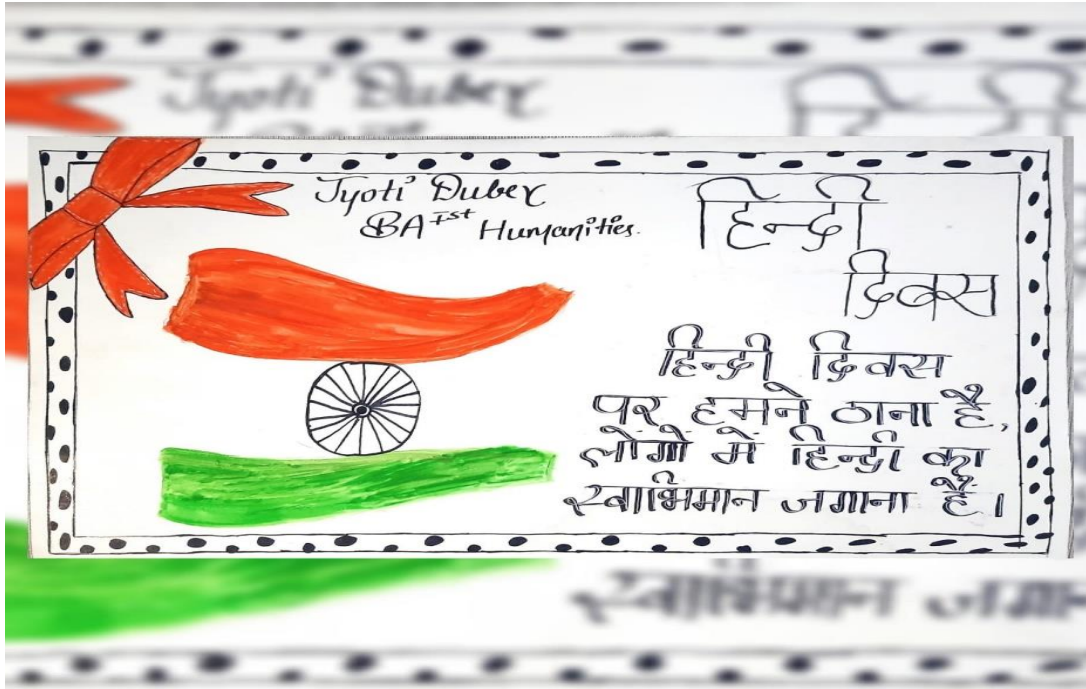 Jyoti Dubey
BA Ist Humanities.
हिन्दी
दिवस
हिन्दी दिवस
पर हमने ठाना है,
लोगो में हिन्दी का
स्वाभिमान जगाना है।